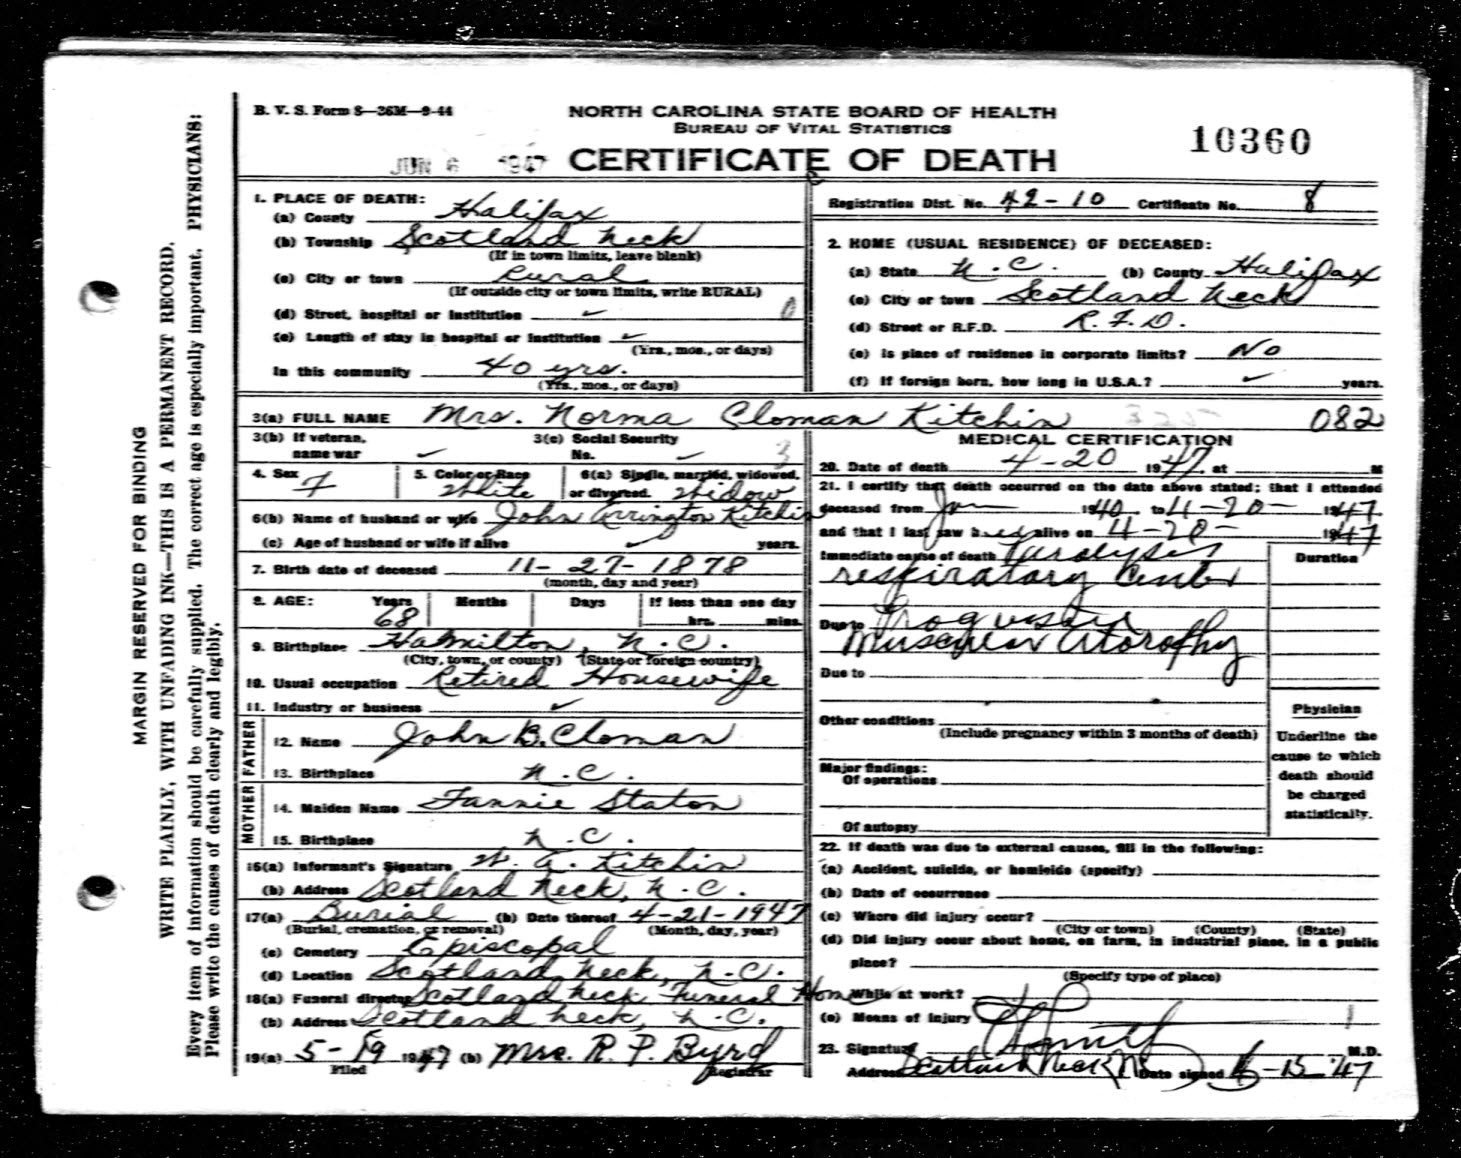 B. V. S. Form 8—36M—9-44
NORTH CAROLINA STATE BOARD OF HEALTH
BUREAU OF VITAL STATISTICS
10360
JUN 6 1947 CERTIFICATE OF DEATH
MARGIN RESERVED FOR BINDING
WRITE PLAINLY, WITH UNFADING INK—THIS IS A PERMANENT RECORD.
Every item of information should be carefully supplied. The correct age is especially important. PHYSICIANS:
Please write the causes of death clearly and legibly.
1. PLACE OF DEATH:
(a) County Halifax
(b) Township Scotland Neck
(If in town limits, leave blank)
(c) City or town Rural
(If outside city or town limits, write RURAL)
(d) Street, hospital or institution ✓ 0
(e) Length of stay in hospital or institution ✓
(Yrs., mos., or days)
In this community 40 yrs.
(Yrs., mos., or days)
Registration Dist. No. 42-10 Certificate No. 8
2. HOME (USUAL RESIDENCE) OF DECEASED:
(a) State N.C. (b) County Halifax
(c) City or town Scotland Neck
(d) Street or R.F.D. R.F.D.
(e) Is place of residence in corporate limits? No
(f) If foreign born, how long in U.S.A.? ✓ years.
3(a) FULL NAME Mrs. Norma Cloman Kitchin 082
3(b) If veteran, name war ✓
3(c) Social Security No. ✓ 3
4. Sex F
5. Color or Race White
6(a) Single, married, widowed, or divorced. Widow
6(b) Name of husband or wife John Arrington Kitchin
(c) Age of husband or wife if alive ✓ years.
7. Birth date of deceased 11-27-1878
(month, day and year)
8. AGE: Years 68 Months Days If less than one day
hrs. mins.
9. Birthplace Hamilton, N.C.
(City, town, or county) (State or foreign country)
10. Usual occupation Retired Housewife
11. Industry or business ✓
FATHER
12. Name John B. Cloman
13. Birthplace N.C.
MOTHER
14. Maiden Name Fannie Staton
15. Birthplace N.C.
16(a) Informant's Signature W. A. Kitchin
(b) Address Scotland Neck, N.C.
17(a) Burial (b) Date thereof 4-21-1947
(Burial, cremation, or removal) (Month, day, year)
(c) Cemetery Episcopal
(d) Location Scotland Neck, N.C.
18(a) Funeral director Scotland Neck Funeral Home
(b) Address Scotland Neck, N.C.
19(a) 5-19 1947 (b) Mrs. R. P. Byrd
Filed Registrar
MEDICAL CERTIFICATION
20. Date of death 4-20 1947 at M
21. I certify that death occurred on the date above stated; that I attended
deceased from Jan 1940 to 4-20- 1947
and that I last saw h alive on 4-20- 1947
Immediate cause of death Paralysis
respiratory center
Duration
Due to
Muscular Atorophy
Due to
Other conditions
(Include pregnancy within 3 months of death)
Major findings:
Of operations
Of autopsy
Physician
Underline the
cause to which
death should
be charged
statistically.
22. If death was due to external causes, fill in the following:
(a) Accident, suicide, or homicide (specify)
(b) Date of occurrence
(c) Where did injury occur?
(City or town) (County) (State)
(d) Did injury occur about home, on farm, in industrial place, in a public
place?
(Specify type of place)
While at work?
(e) Means of injury
23. Signature M.D.
Address Scotland Neck NC Date signed 15-47